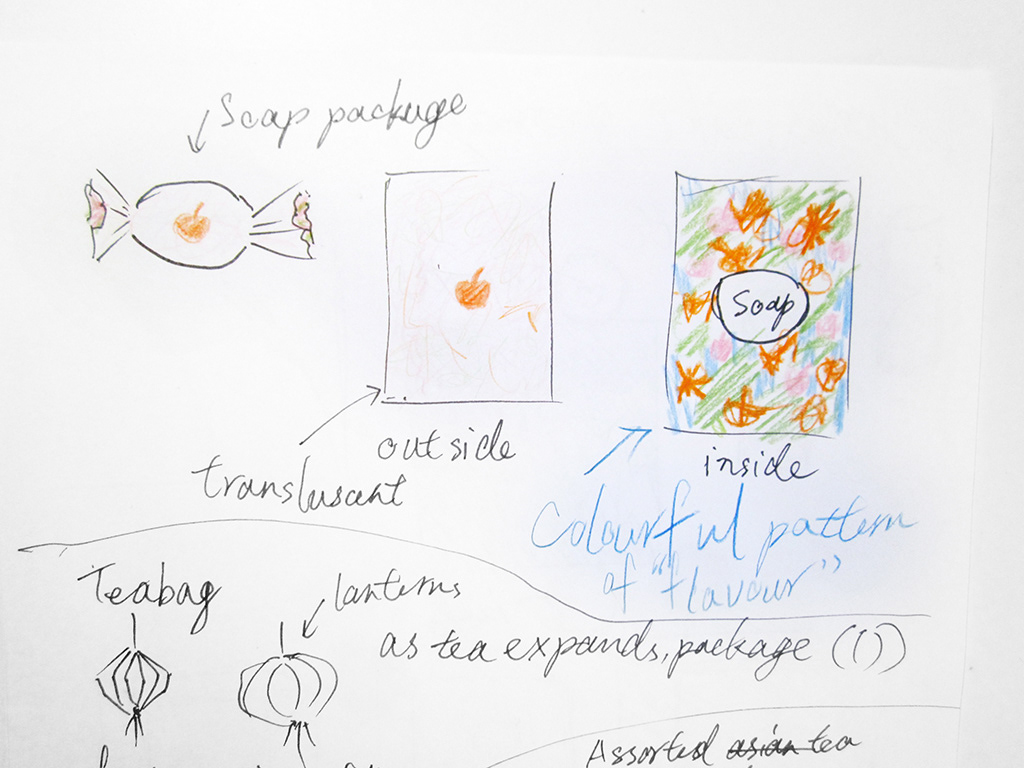 Soap package
Soap
outside
inside
translusant
Colourful pattern
of "flavour"
Teabag
lanterns
as tea expands, package (())
Assorted asian tea